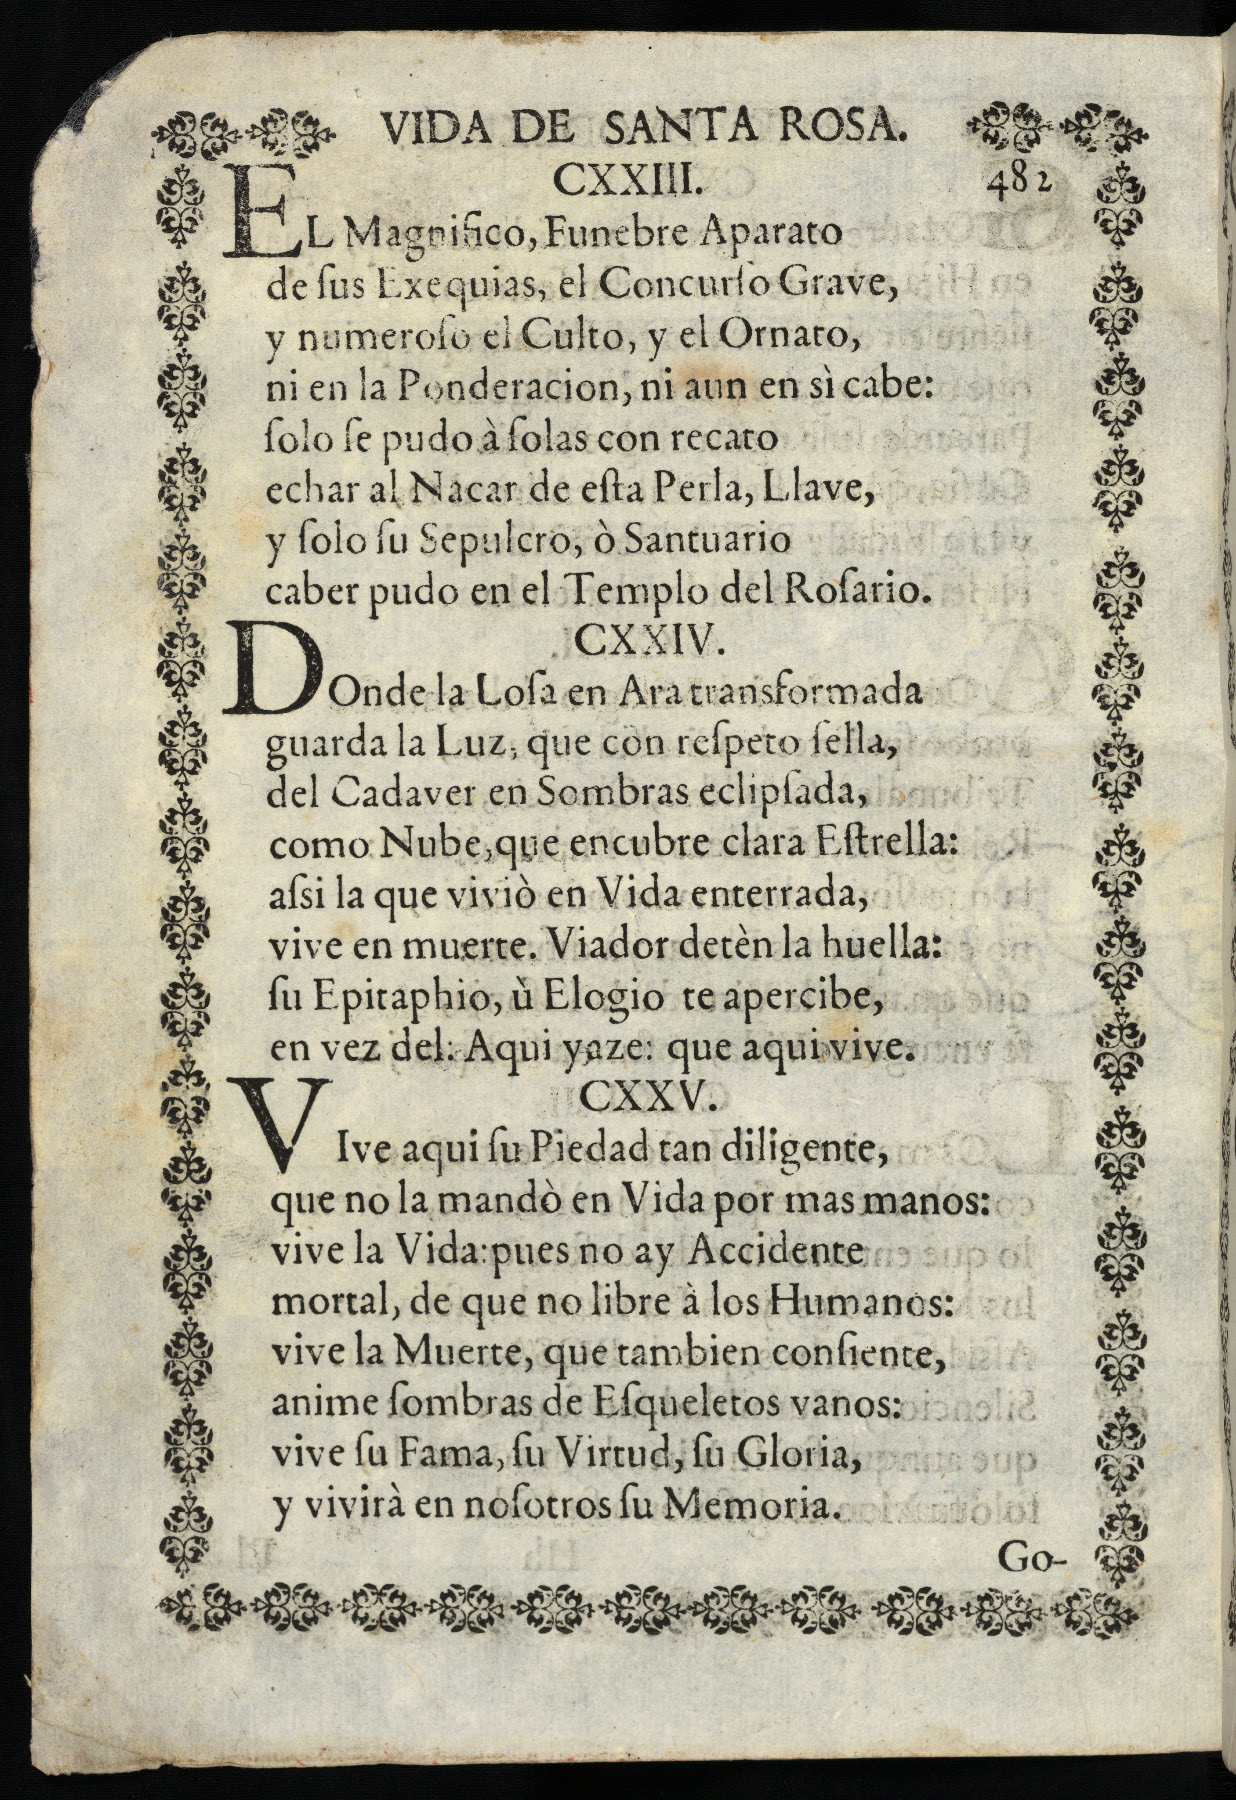 VIDA DE SANTA ROSA.
CXXIII. 482
EL Magnifico, Funebre Aparato
de ſus Exequias, el Concurſo Grave,
y numeroſo el Culto, y el Ornato,
ni en la Ponderacion, ni aun en sì cabe:
ſolo ſe pudo à ſolas con recato
echar al Nacar de eſta Perla, Llave,
y ſolo ſu Sepulcro, ò Santuario
caber pudo en el Templo del Roſario.
CXXIV.
DOnde la Loſa en Ara transformada
guarda la Luz, que con reſpeto ſella,
del Cadaver en Sombras eclipſada,
como Nube, que encubre clara Eſtrella:
aſsi la que viviò en Vida enterrada,
vive en muerte. Viador detèn la huella:
ſu Epitaphio, ù Elogio te apercibe,
en vez del: Aqui yaze: que aqui vive.
CXXV.
VIve aqui ſu Piedad tan diligente,
que no la mandò en Vida por mas manos:
vive la Vida: pues no ay Accidente
mortal, de que no libre à los Humanos:
vive la Muerte, que tambien conſiente,
anime ſombras de Eſqueletos vanos:
vive ſu Fama, ſu Virtud, ſu Gloria,
y vivirà en noſotros ſu Memoria.
Go-